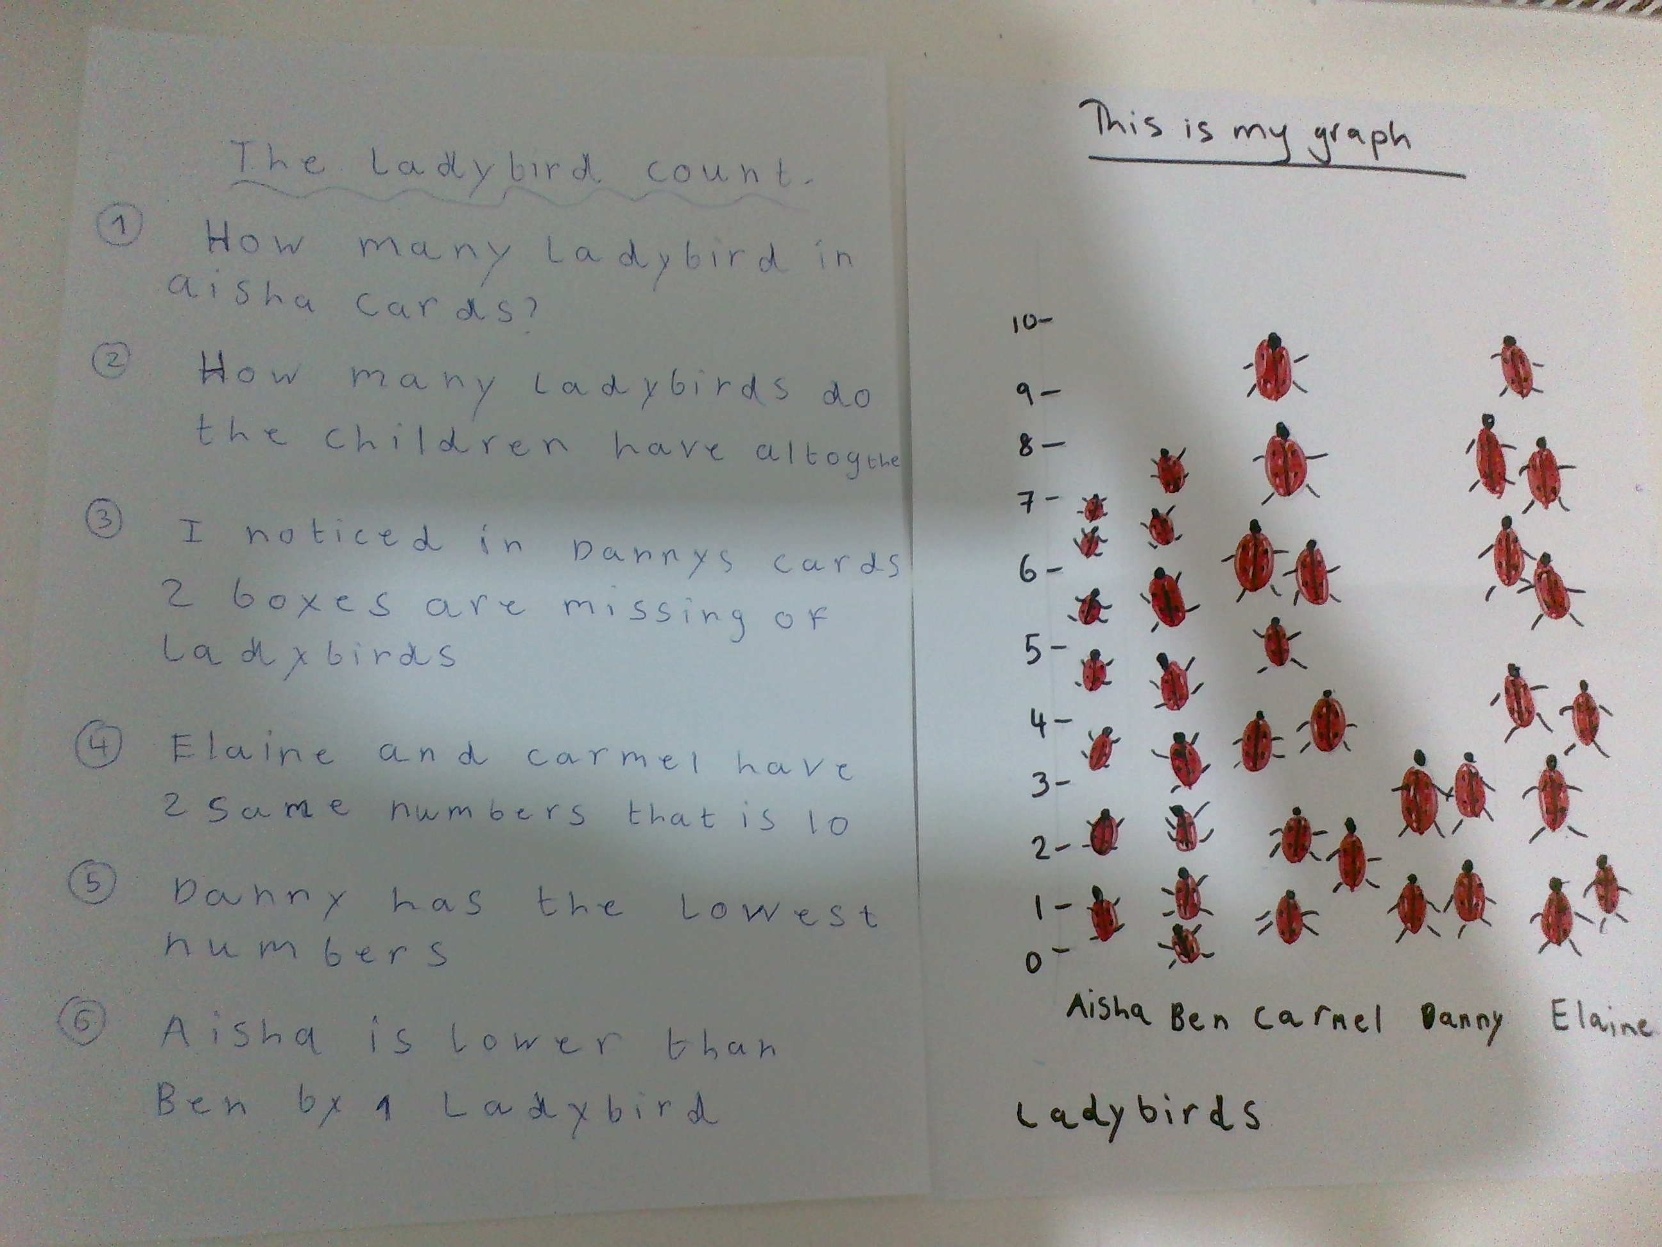 The Ladybird count.
① How many Ladybird in
aisha cards?
② How many Ladybirds do
the children have altogthe
③ I noticed in Dannys cards
2 boxes are missing of
Ladybirds
④ Elaine and carmel have
2 same numbers that is 10
⑤ Danny has the Lowest
numbers
⑥ Aisha is lower than
Ben by 1 Ladybird
This is my graph
10-
9-
8-
7-
6-
5-
4-
3-
2-
1-
0-
Aisha Ben Carmel Danny Elaine
Ladybirds